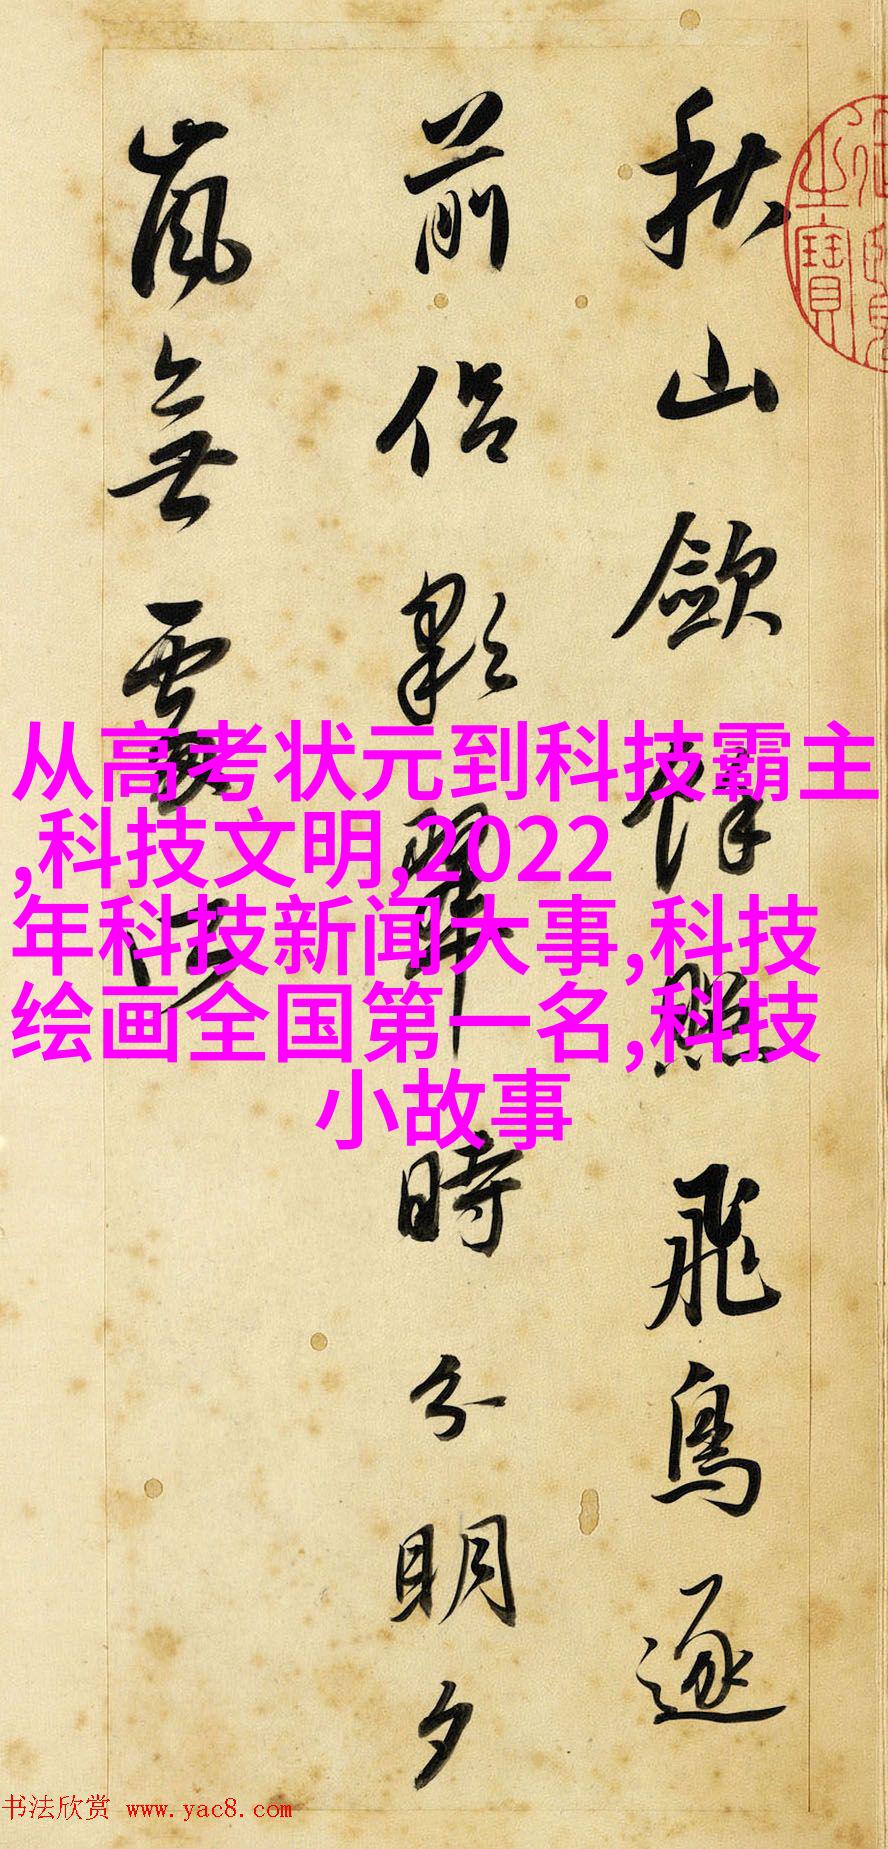 秋山歛餘照飛鳥逐
前侶彩翠時分明夕
嵐無處所
从高考状元到科技霸主
,科技文明,2022
年科技新闻大事,科技
绘画全国第一名,科技
小故事
之寶
书法欣赏 www.yac8.com